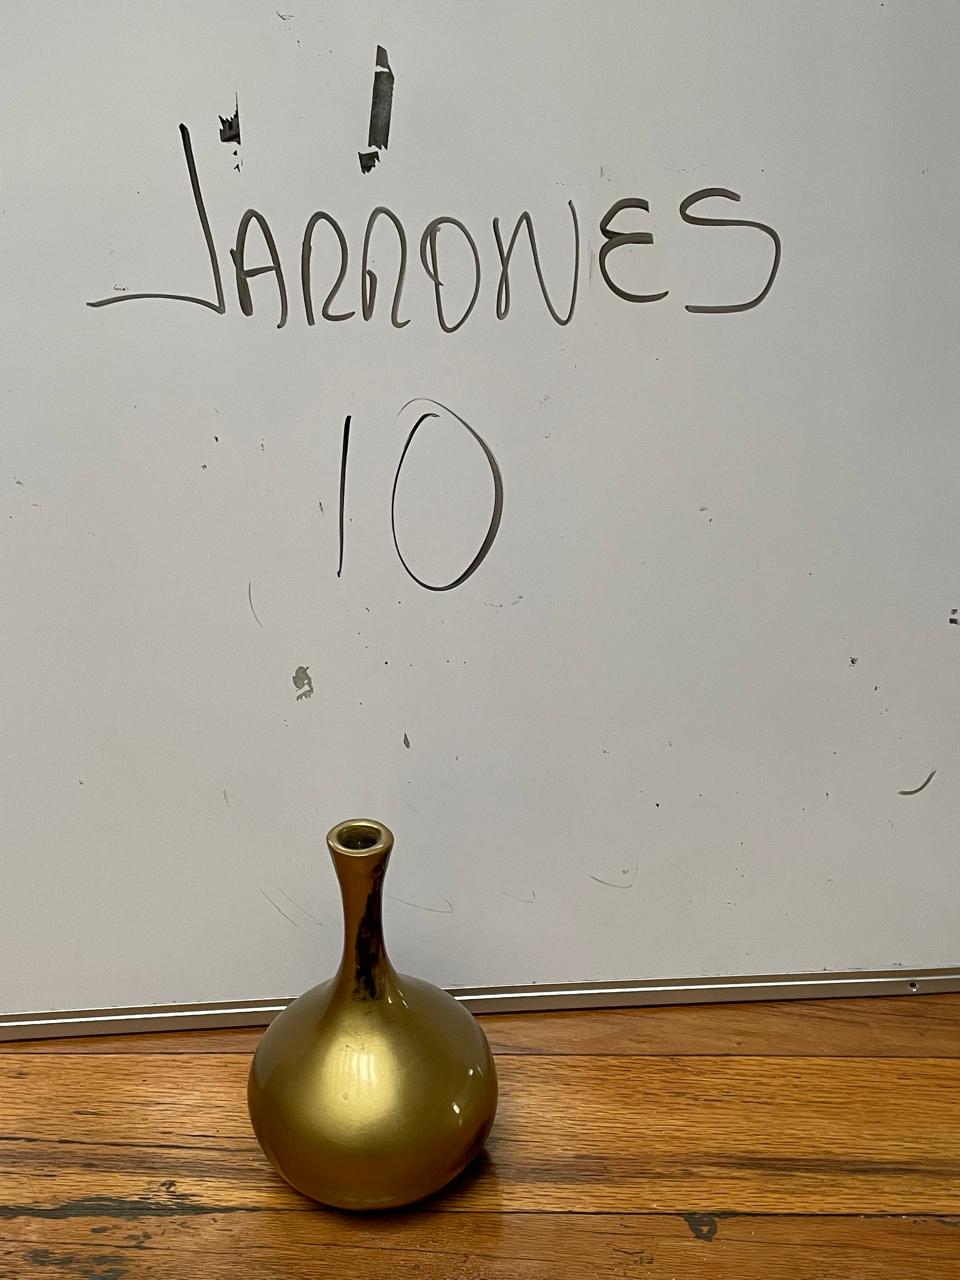 JARRONES
10